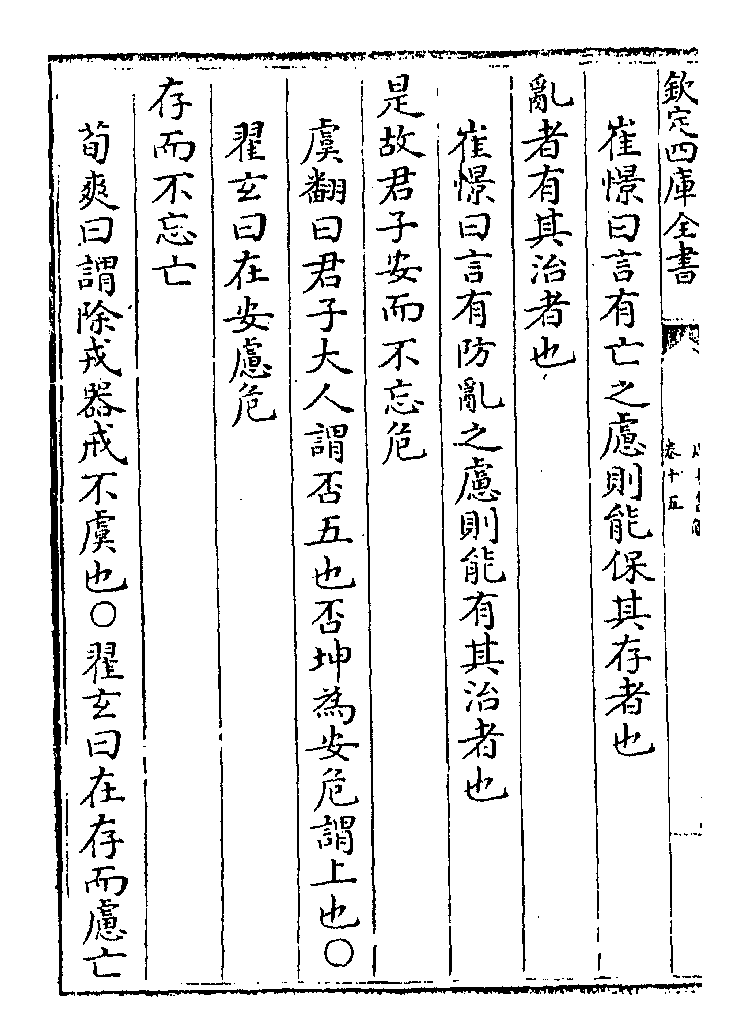 欽定四庫全書
卷十五
崔憬曰言有亡之慮則能保其存者也
亂者有其治者也
崔憬曰言有防亂之慮則能有其治者也
是故君子安而不忘危
虞翻曰君子大人謂否五也否坤為安危謂上也〇
翟玄曰在安慮危
存而不忘亡
荀爽曰謂除戎器戒不虞也〇翟玄曰在存而慮亡